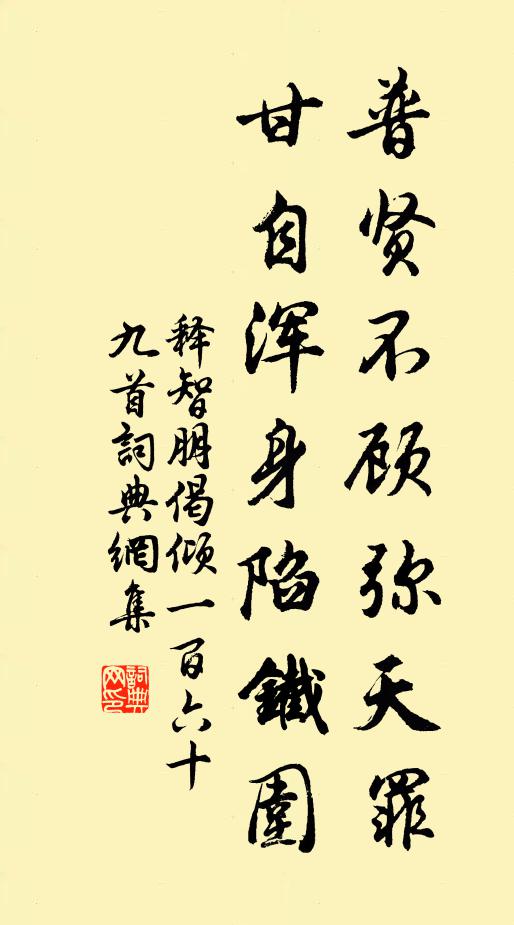 普贤不顾弥天罪
甘自浑身陷鐵圍
释智朋偈倾一百六十
九首詞典網集
詞典網印